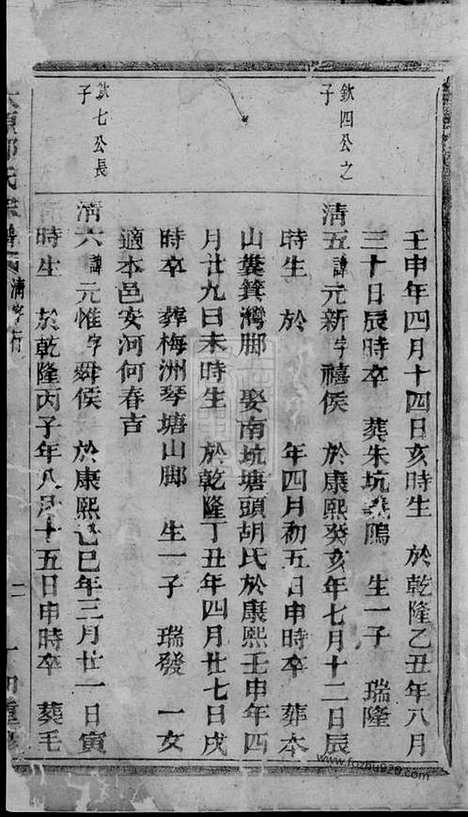 壬申年四月十四日亥時生 於乾隆乙丑年八月
三十日辰時卒 葬朱坑鵝 生一子 瑞隆
欽四公之
子
清五諱元新字禧侯 於康熙癸亥年七月十二日辰
時生 於 年四月初五日申時卒 葬本
山糞箕灣脚 娶南坑塘頭胡氏於康熙壬申年四
月廿九日未時生 於乾隆丁丑年四月廿七日戌
時卒 葬梅洲琴塘山脚 生一子 瑞發 一女
適本邑安河何春吉
欽七公長
子
清六諱元惟字舜侯 於康熙己巳年三月廿一日寅
時生 於乾隆丙子年八月十五日申時卒 葬毛
氏宗譜 清字行
二
重修
www.fozhu920.com